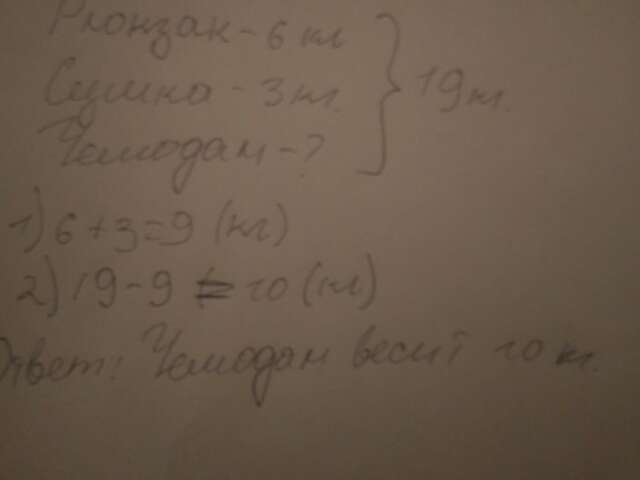 Рюкзак - 6 кг
Сумка - 3 кг. } 19 кг.
Чемодан - ?
1) 6 + 3 = 9 (кг)
2) 19 - 9 = 10 (кг)
Ответ: Чемодан весит 10 кг.